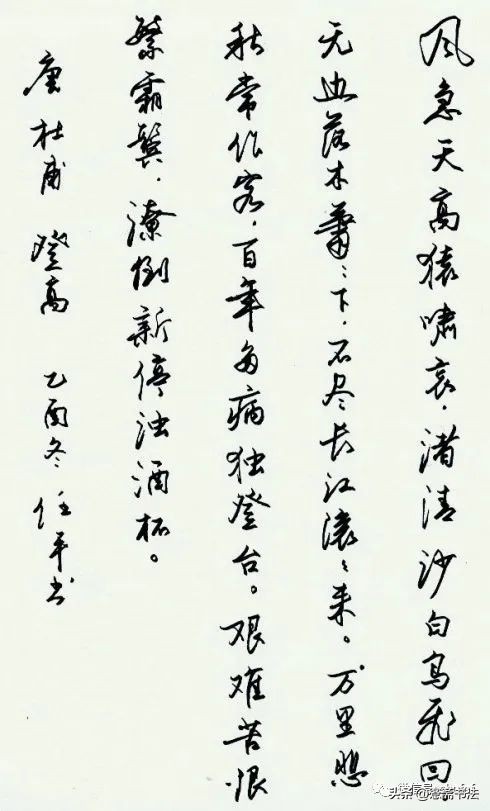 风急天高猿啸哀，渚清沙白鸟飞回。
无边落木萧萧下，不尽长江滚滚来。万里悲
秋常作客，百年多病独登台。艰难苦恨
繁霜鬓，潦倒新停浊酒杯。
唐 杜甫 登高 乙酉冬 任平书
头条 @